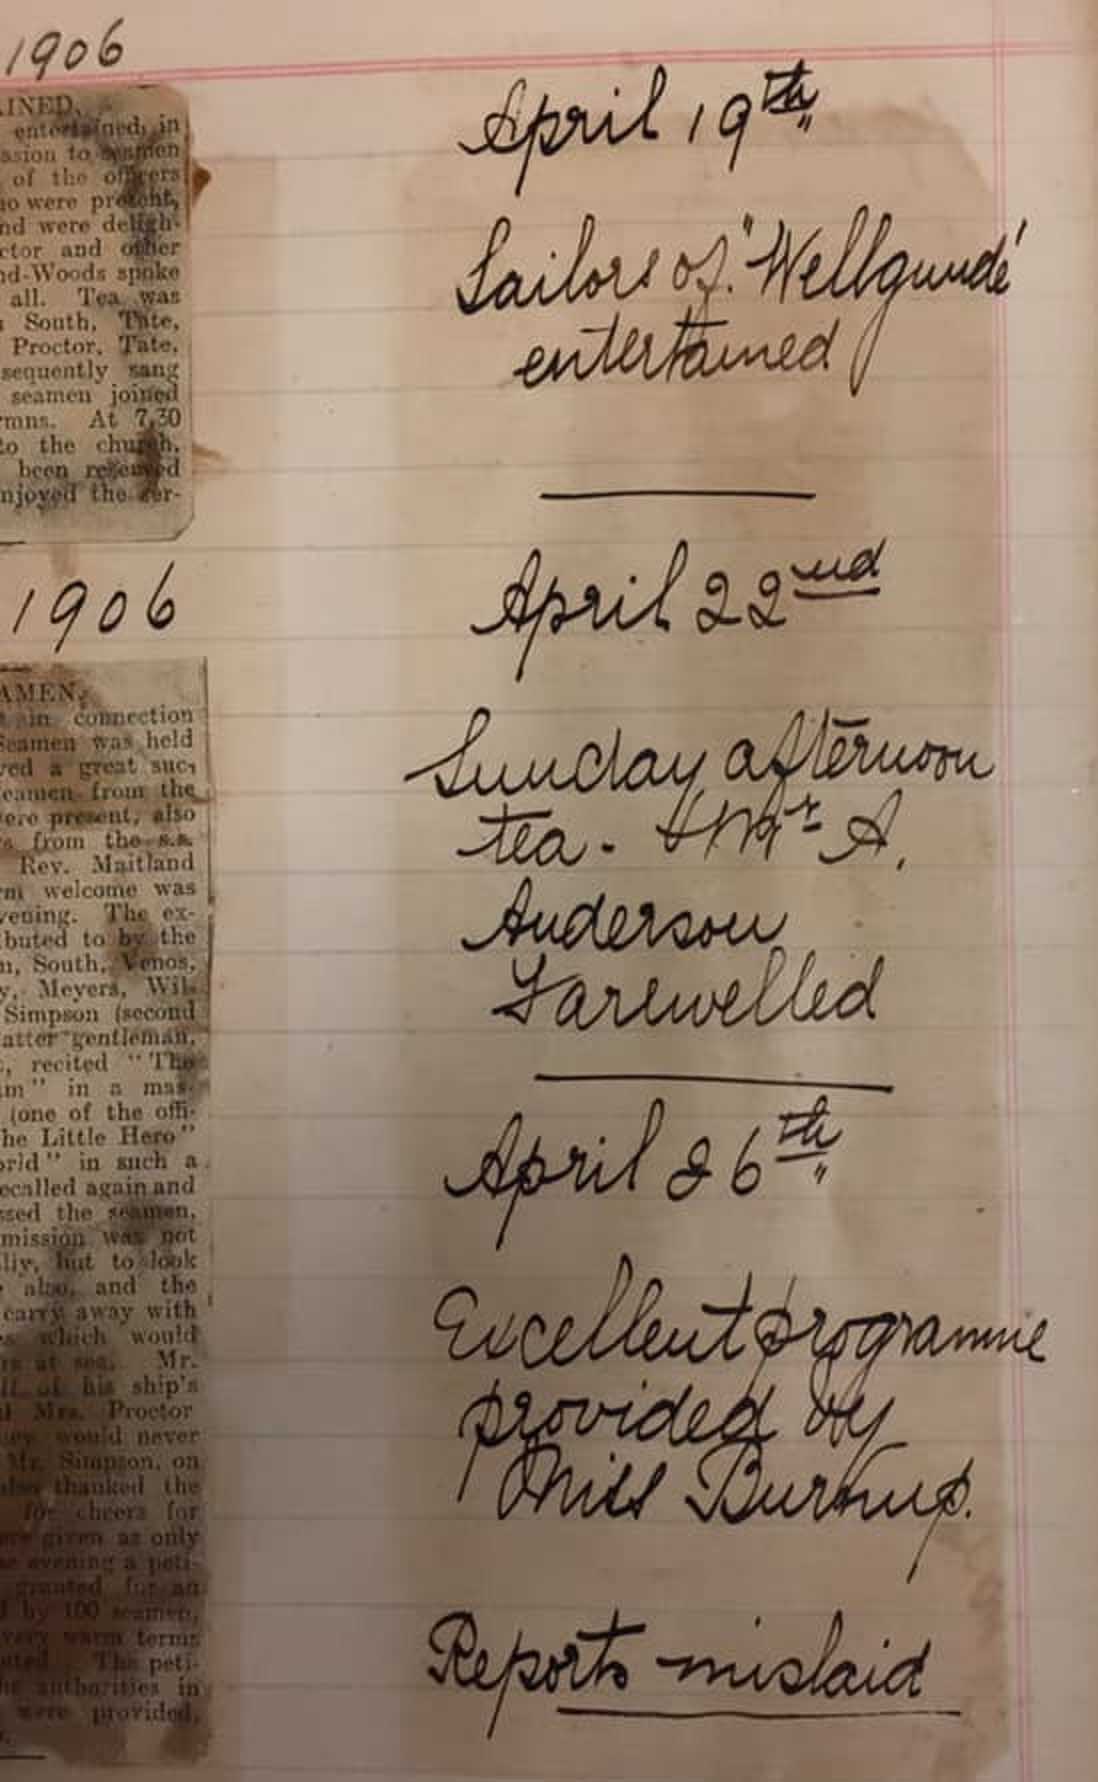 1906
AINED.
entertained, in
ssion to seamen
of the officers
ho were present,
nd were deligh-
ctor and other
nd-Woods spoke
all. Tea was
South, Tate,
Proctor, Tate,
sequently sang
seamen joined
mns. At 7.30
to the church,
been reserved
njoyed the ser-
1906
AMEN.
in connection
Seamen was held
ved a great suc-
eamen from the
ere present, also
from the s.s.
Rev. Maitland
rm welcome was
vening. The ex-
buted to by the
n, South, Venos,
y, Meyers, Wil-
Simpson (second
atter gentleman,
, recited "The
m" in a mas-
(one of the offi-
he Little Hero"
orld" in such a
ecalled again and
ssed the seamen,
mission was not
lly, but to look
also, and the
carry away with
es which would
rs at sea. Mr.
lf of his ship's
d Mrs. Proctor
hey would never
Mr. Simpson, on
also thanked the
for cheers for
ere given as only
he evening a peti-
granted for an
d by 100 seamen,
very warm terms
The peti-
he authorities in
were provided,
April 19th
Sailors of "Wellgunde'
entertained
April 22nd
Sunday afternoon
tea. & Mr A.
Anderson
Farewelled
April 26th
Excellent programme
provided by
Miss Burnup.
Reports mislaid